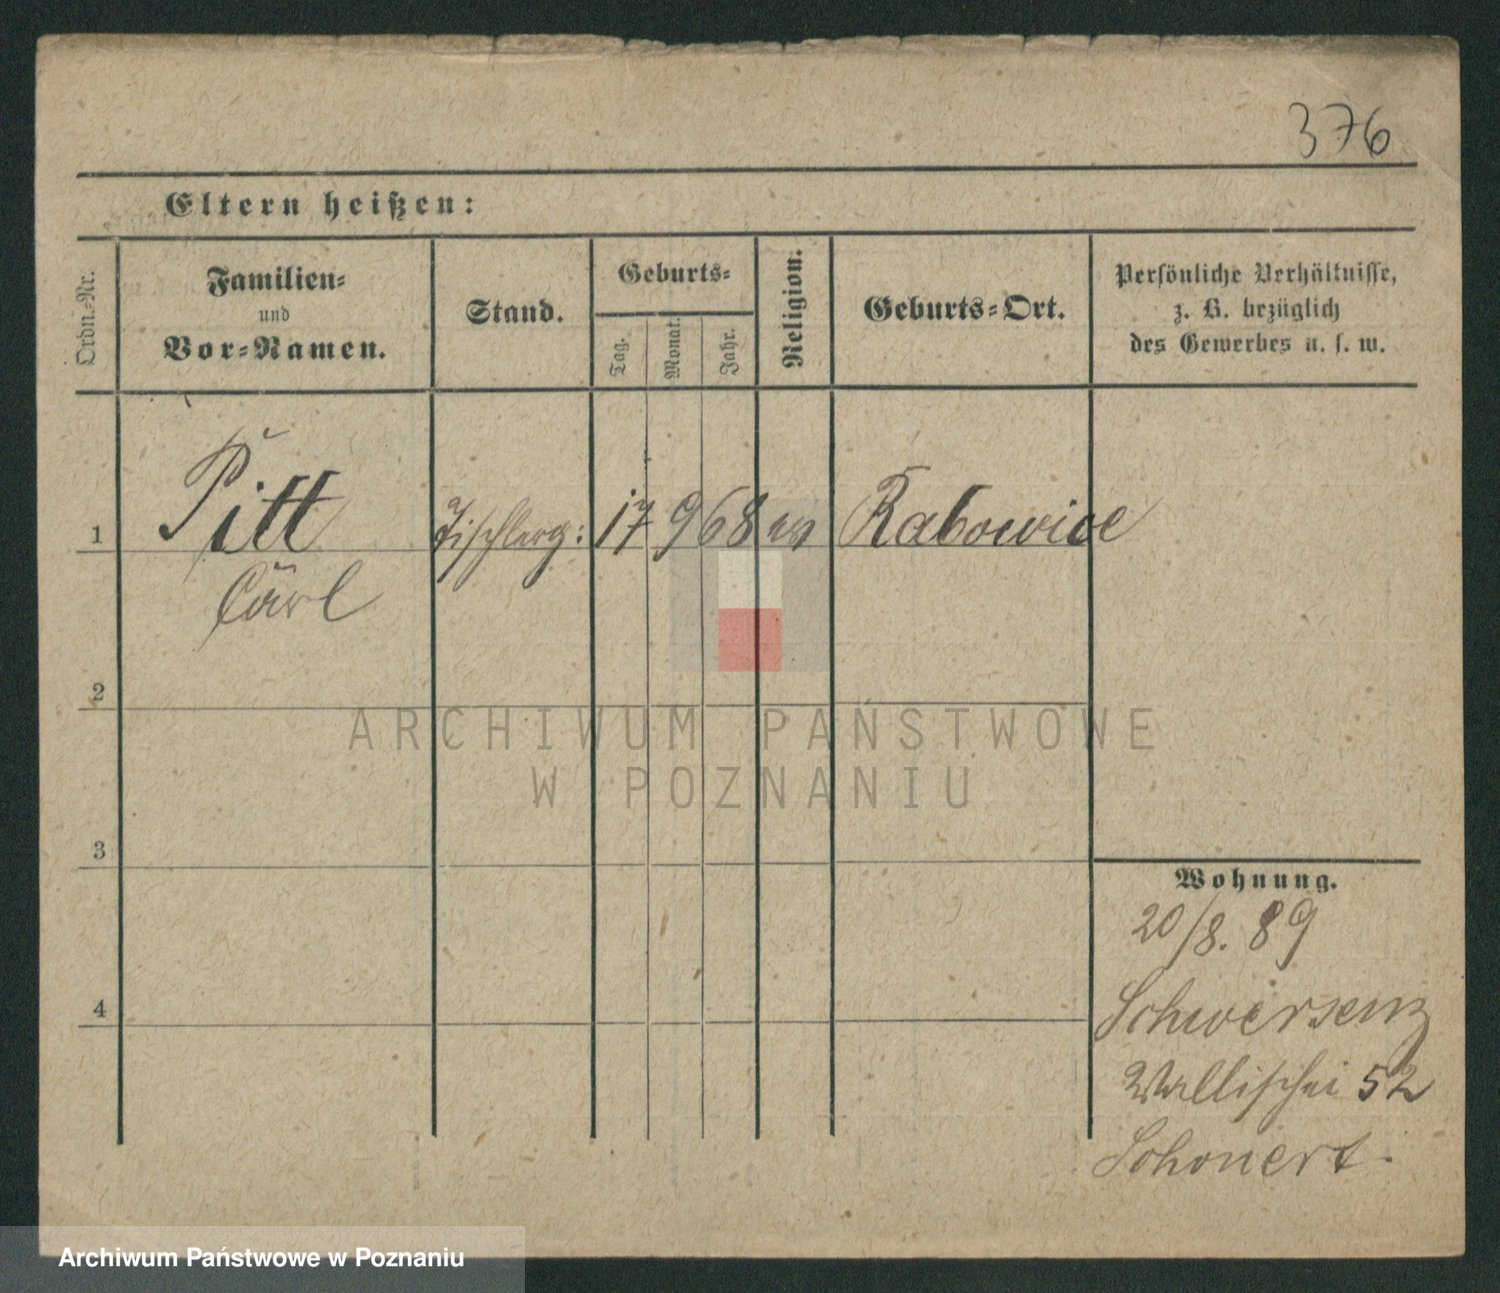 376
Eltern heißen:
Ordn.-Nr.
Familien-
und
Vor-Namen.
Stand.
Geburts-
Tag.
Monat.
Jahr.
Religion.
Geburts-Ort.
Persönliche Verhältnisse,
z. B. bezüglich
des Gewerbes u. s. w.
1 Pitt Tischlerg: 17 9 68 ev Rabowice
Carl
2
ARCHIWUM PAŃSTWOWE
W POZNANIU
3
Wohnung.
20/8. 89
4
Schwersenz
Wallischei 52
Schonert.
Archiwum Państwowe w Poznaniu